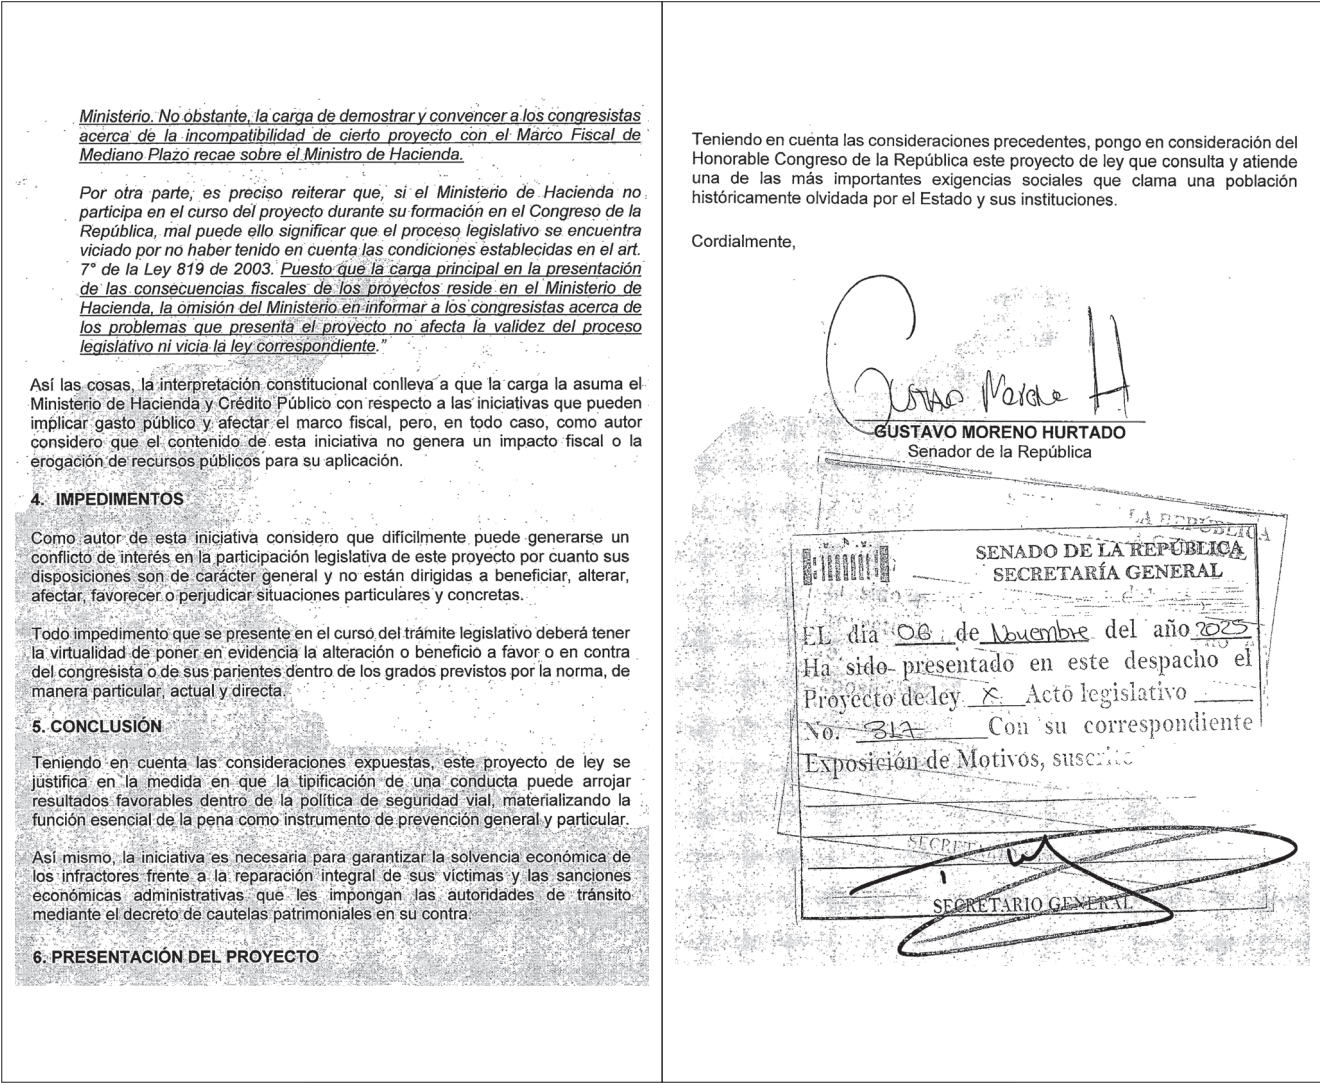 Ministerio. No obstante, la carga de demostrar y convencer a los congresistas
acerca de la incompatibilidad de cierto proyecto con el Marco Fiscal de
Mediano Plazo recae sobre el Ministro de Hacienda.
Por otra parte, es preciso reiterar que, si el Ministerio de Hacienda no
participa en el curso del proyecto durante su formación en el Congreso de la
República, mal puede ello significar que el proceso legislativo se encuentra
viciado por no haber tenido en cuenta las condiciones establecidas en el art.
7° de la Ley 819 de 2003. Puesto que la carga principal en la presentación
de las consecuencias fiscales de los proyectos reside en el Ministerio de
Hacienda, la omisión del Ministerio en informar a los congresistas acerca de
los problemas que presenta el proyecto no afecta la validez del proceso
legislativo ni vicia la ley correspondiente."
Así las cosas, la interpretación constitucional conlleva a que la carga la asuma el
Ministerio de Hacienda y Crédito Público con respecto a las iniciativas que pueden
implicar gasto público y afectar el marco fiscal, pero, en todo caso, como autor
considero que el contenido de esta iniciativa no genera un impacto fiscal o la
erogación de recursos públicos para su aplicación.
4. IMPEDIMENTOS
Como autor de esta iniciativa considero que difícilmente puede generarse un
conflicto de interés en la participación legislativa de este proyecto por cuanto sus
disposiciones son de carácter general y no están dirigidas a beneficiar, alterar,
afectar, favorecer o perjudicar situaciones particulares y concretas.
Todo impedimento que se presente en el curso del trámite legislativo deberá tener
la virtualidad de poner en evidencia la alteración o beneficio a favor o en contra
del congresista o de sus parientes dentro de los grados previstos por la norma, de
manera particular, actual y directa.
5. CONCLUSIÓN
Teniendo en cuenta las consideraciones expuestas, este proyecto de ley se
justifica en la medida en que la tipificación de una conducta puede arrojar
resultados favorables dentro de la política de seguridad vial, materializando la
función esencial de la pena como instrumento de prevención general y particular.
Así mismo, la iniciativa es necesaria para garantizar la solvencia económica de
los infractores frente a la reparación integral de sus víctimas y las sanciones
económicas administrativas que les impongan las autoridades de tránsito
mediante el decreto de cautelas patrimoniales en su contra
6. PRESENTACIÓN DEL PROYECTO
Teniendo en cuenta las consideraciones precedentes, pongo en consideración del
Honorable Congreso de la República este proyecto de ley que consulta y atiende
una de las más importantes exigencias sociales que clama una población
históricamente olvidada por el Estado y sus instituciones.
Cordialmente,
Gustavo Moreno H
GUSTAVO MORENO HURTADO
Senador de la República
LA REPÚBLICA
SENADO DE LA REPÚBLICA
SECRETARÍA GENERAL
EL día 06 de Noviembre del año 2025
Ha sido presentado en este despacho el
Proyecto de ley X Acto legislativo
No. 317 Con su correspondiente
Exposición de Motivos, suscrito
SECRETARIO GENERAL